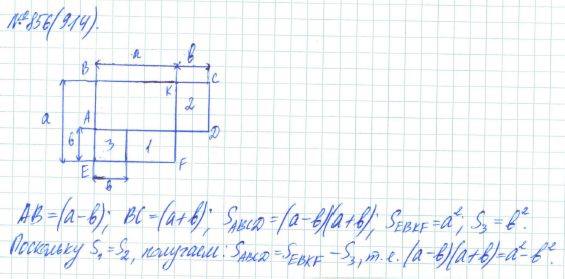 № 856(914).
a
b
B
K
C
a
2
A
D
b
3
1
E
F
b
AB=(a-b); BC=(a+b); S_ABCD=(a-b)(a+b); S_EBKF=a²; S₃=b².
Поскольку S₁=S₂, получаем: S_ABCD=S_EBKF-S₃, т.е. (a-b)(a+b)=a²-b².